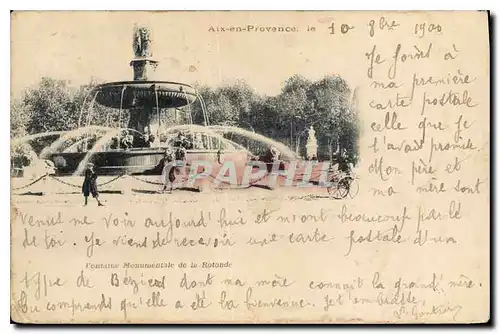 Aix-en-Provence, le 10 8bre 1900
Je joins à
ma première
carte postale
celle que je
t'avais promis.
Mon père et
ma mère sont
venus me voir aujourd'hui et m'ont beaucoup parlé
de toi. Je viens de recevoir une carte postale d'un
Fontaine Monumentale de la Rotonde
type de Béziers dont ma mère connait la grand'mère.
Tu comprends qu'elle a été la bienvenue. Je t'embrasse
CARTE GRAPHIE